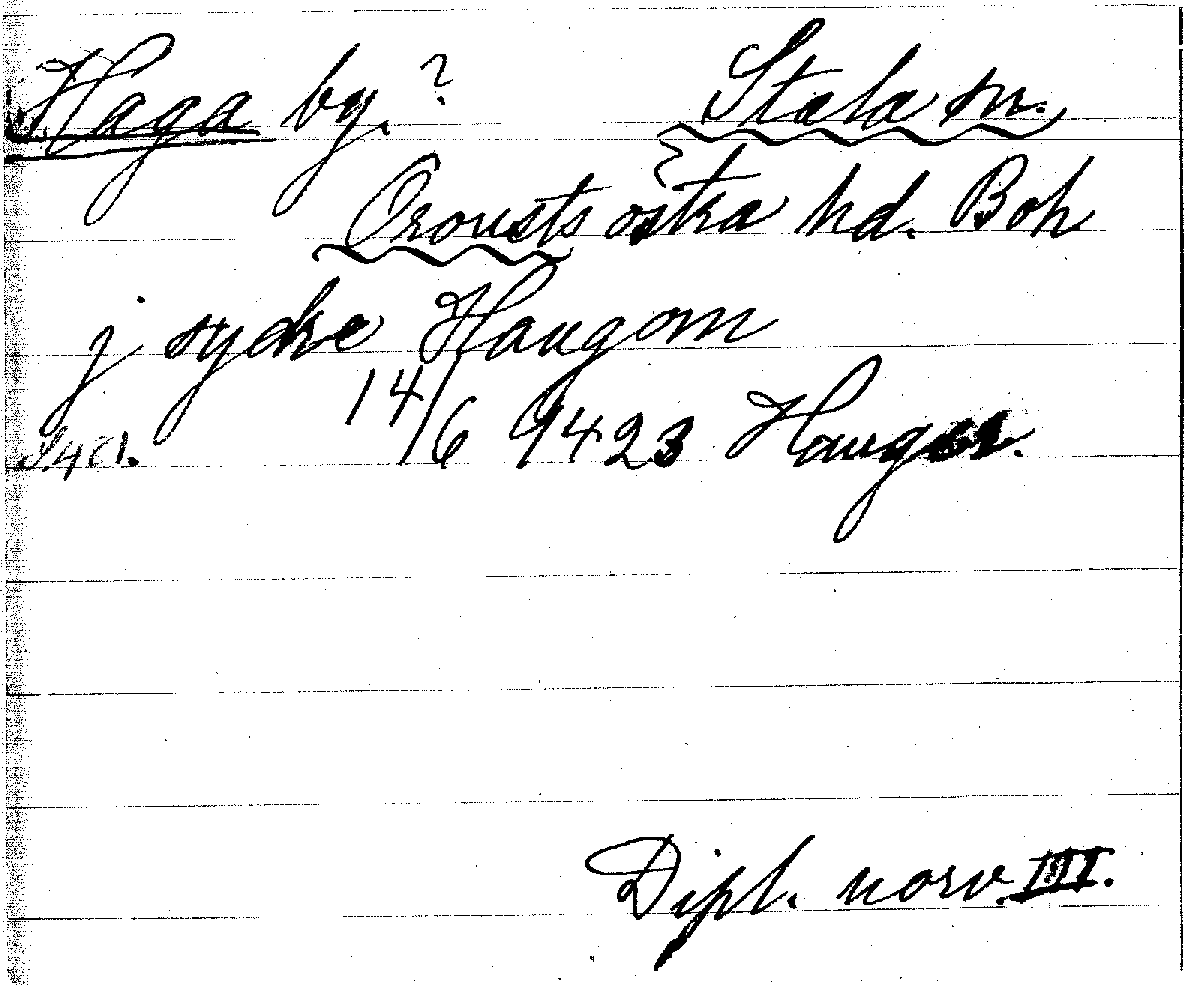 Haga by.? Stala sn.
Orousts östra hd. Boh
j sydre Haugom
S.481. 14/6 9423 Haugar.
Dipl. norv. III.